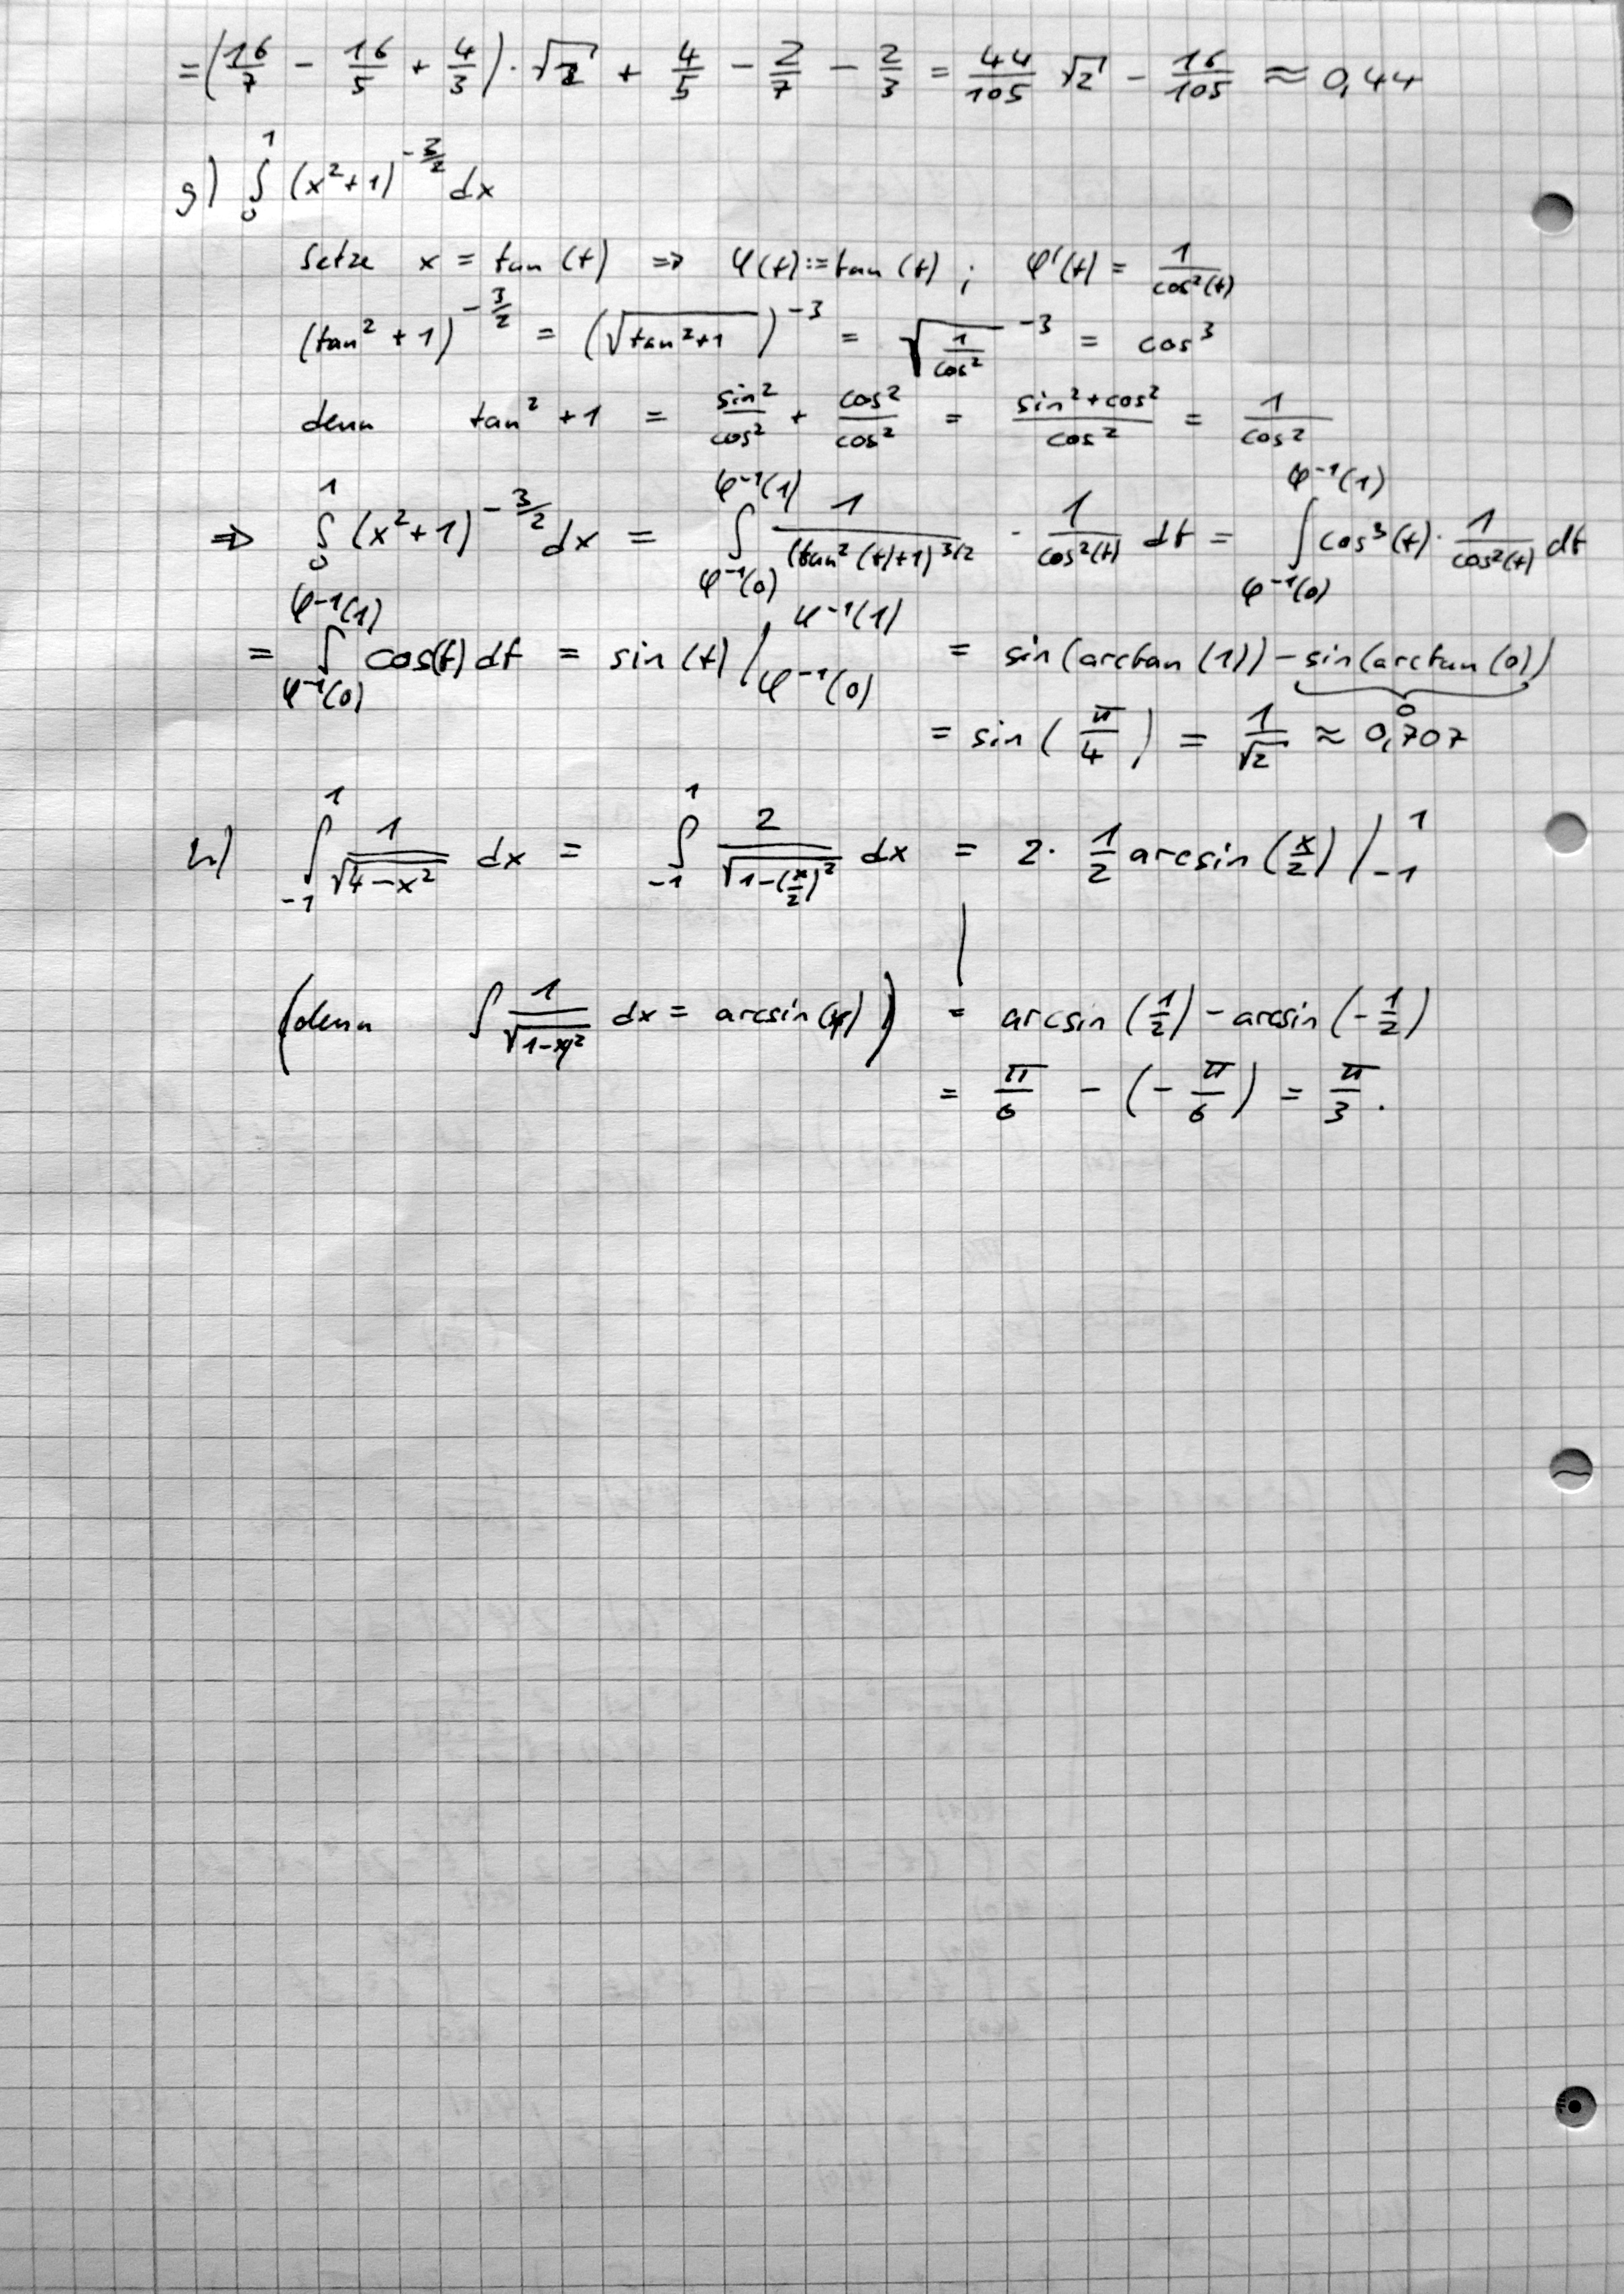 = (16/7 - 16/5 + 4/3) · √2 + 4/5 - 2/7 - 2/3 = 44/105 √2 - 16/105 ≈ 0,44
g) ∫₀¹ (x² + 1)^(-3/2) dx
Setze x = tan (t) ⇒ φ(t) := tan (t) ; φ'(t) = 1/cos²(t)
(tan² + 1)^(-3/2) = (√(tan² + 1))^(-3) = √(1/cos²)^(-3) = cos³
denn tan² + 1 = sin²/cos² + cos²/cos² = (sin² + cos²)/cos² = 1/cos²
⇒ ∫₀¹ (x² + 1)^(-3/2) dx = ∫_{φ⁻¹(0)}^{φ⁻¹(1)} 1/(tan²(t)+1)^(3/2) · 1/cos²(t) dt = ∫_{φ⁻¹(0)}^{φ⁻¹(1)} cos³(t) · 1/cos²(t) dt
= ∫_{φ⁻¹(0)}^{φ⁻¹(1)} cos(t) dt = sin (t) |_{φ⁻¹(0)}^{φ⁻¹(1)} = sin (arctan (1)) - sin (arctan (0))
0
= sin (π/4) = 1/√2 ≈ 0,707
h) ∫₋₁¹ 1/√(4 - x²) dx = ∫₋₁¹ 2/√(1 - (x/2)²) dx = 2 · 1/2 arcsin (x/2) |₋₁¹
(denn ∫ 1/√(1 - x²) dx = arcsin (x)) = arcsin (1/2) - arcsin (-1/2)
= π/6 - (-π/6) = π/3 .